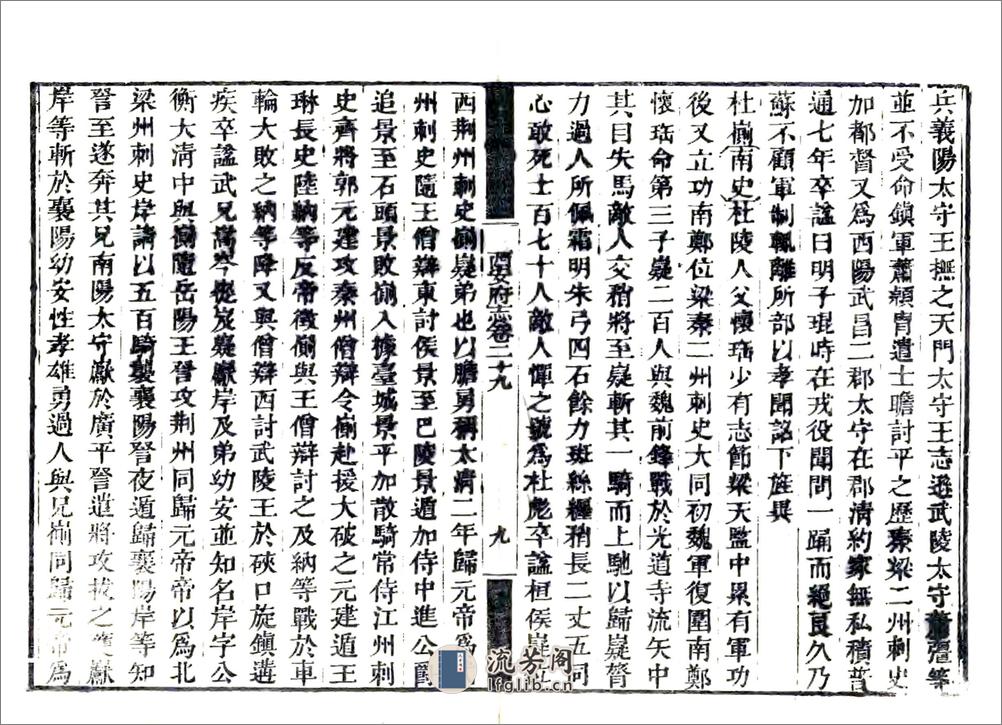 兵義陽太守王撫之天門太守王志遜武陵太守蕭彊等
並不受命鎮軍蕭穎胄遣士瞻討平之歷秦梁二州刺史
加都督又爲西陽武昌二郡太守在郡清約家無私積普
通七年卒諡曰明子琨時在戎役聞問一踊而絕良久乃
蘇不顧軍制輒離所部以孝聞詔下旌撰
杜崱南史杜陵人父懷瑤少有志節梁天監中累有軍功
後又立功南鄭位梁秦二州刺史大同初魏軍復圍南鄭
懷瑤命第三子嶷二百人與魏前鋒戰於光道寺流矢中
其目失馬敵人交矟將至嶷斬其一騎而上馳以歸嶷膂
力過人所佩霜明朱弓四石餘力斑絲纏矟長二丈五同
心敢死士百七十人敵人憚之號爲杜彪卒諡桓侯嶷
西安府志卷二十九
九
西荆州刺史崱嶷弟也以膽勇稱太清二年歸元帝爲
州刺史隨王僧辯東討侯景至巴陵景遁加侍中進公爵
追景至石頭景敗崱入據臺城景平加散騎常侍江州刺
史齊將郭元建攻秦州僧辯令崱赴援大破之元建遁王
琳長史陸納等反帝徵崱與王僧辯討之及納等戰於車
輪大敗之納等降又與僧辯西討武陵王於硤口旋鎮遘
疾卒諡武兄嵩岑嶷岌巚岸及弟幼安並知名岸字公
衡大清中與崱隨岳陽王詧攻荆州同歸元帝帝以爲北
梁州刺史岸請以五百騎襲襄陽詧夜遁歸襄陽岸等知
詧至遂奔其兄南陽太守巚於廣平詧遣將攻拔之獲巚
岸等斬於襄陽幼安性孝雄勇過人與兄崱同歸元帝爲
流芳阁
lfglib.cn